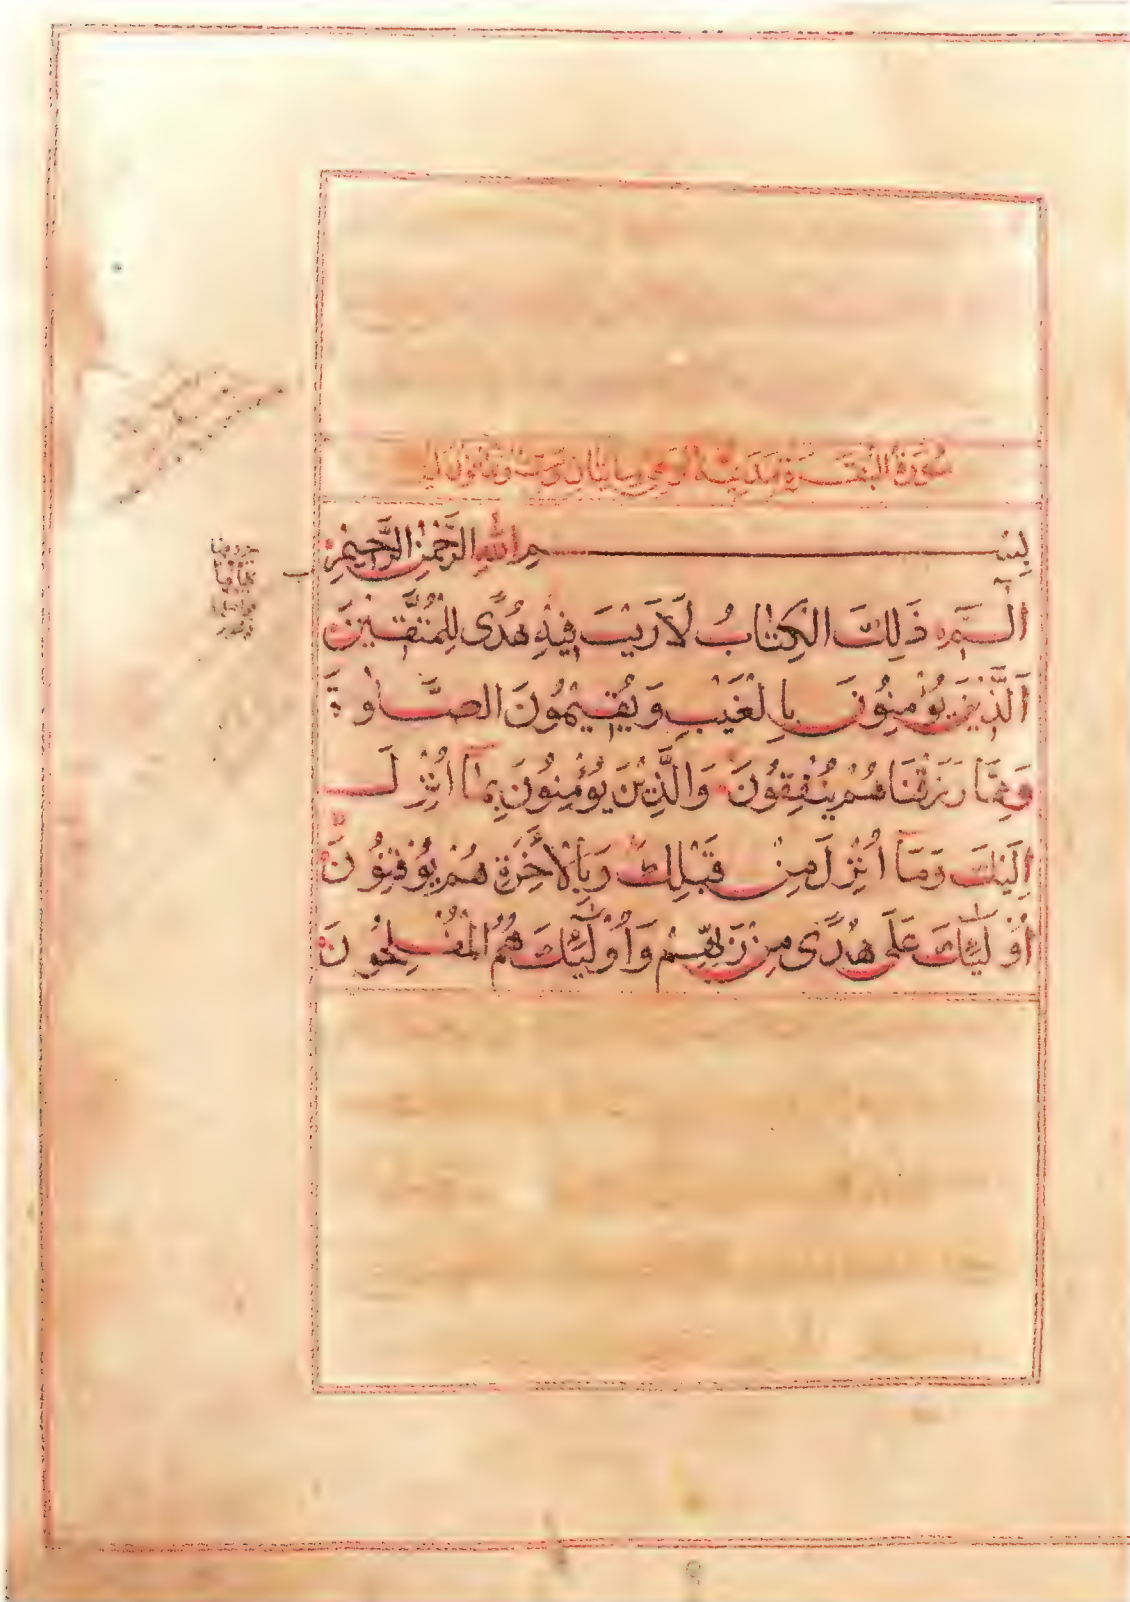 سُورَةُ الْبَقَرَةِ مَدَنِيَّةٌ وَهِيَ مِايَتَانِ وَسِتٌّ وَثَمَانُونَ
بِسْمِ اللّٰهِ الرَّحْمٰنِ الرَّحِيْمِ
الٓمٓ ذَلِكَ الْكِتٰابُ لَا رَيْبَ فِيْهِ هُدًى لِلْمُتَّقِيْنَ
اَلَّذِيْنَ يُؤْمِنُونَ بِالْغَيْبِ وَيُقِيْمُونَ الصَّلٰوةَ
وَمِمَّا رَزَقْنَاهُمْ يُنْفِقُونَ وَالَّذِيْنَ يُؤْمِنُونَ بِمَآ اُنْزِلَ
اِلَيْكَ وَمَآ اُنْزِلَ مِنْ قَبْلِكَ وَبِالْاٰخِرَةِ هُمْ يُوْقِنُوْنَ
اُوْلٰٓئِكَ عَلَى هُدًى مِنْ رَبِّهِمْ وَاُوْلٰٓئِكَ هُمُ الْمُفْلِحُونَ